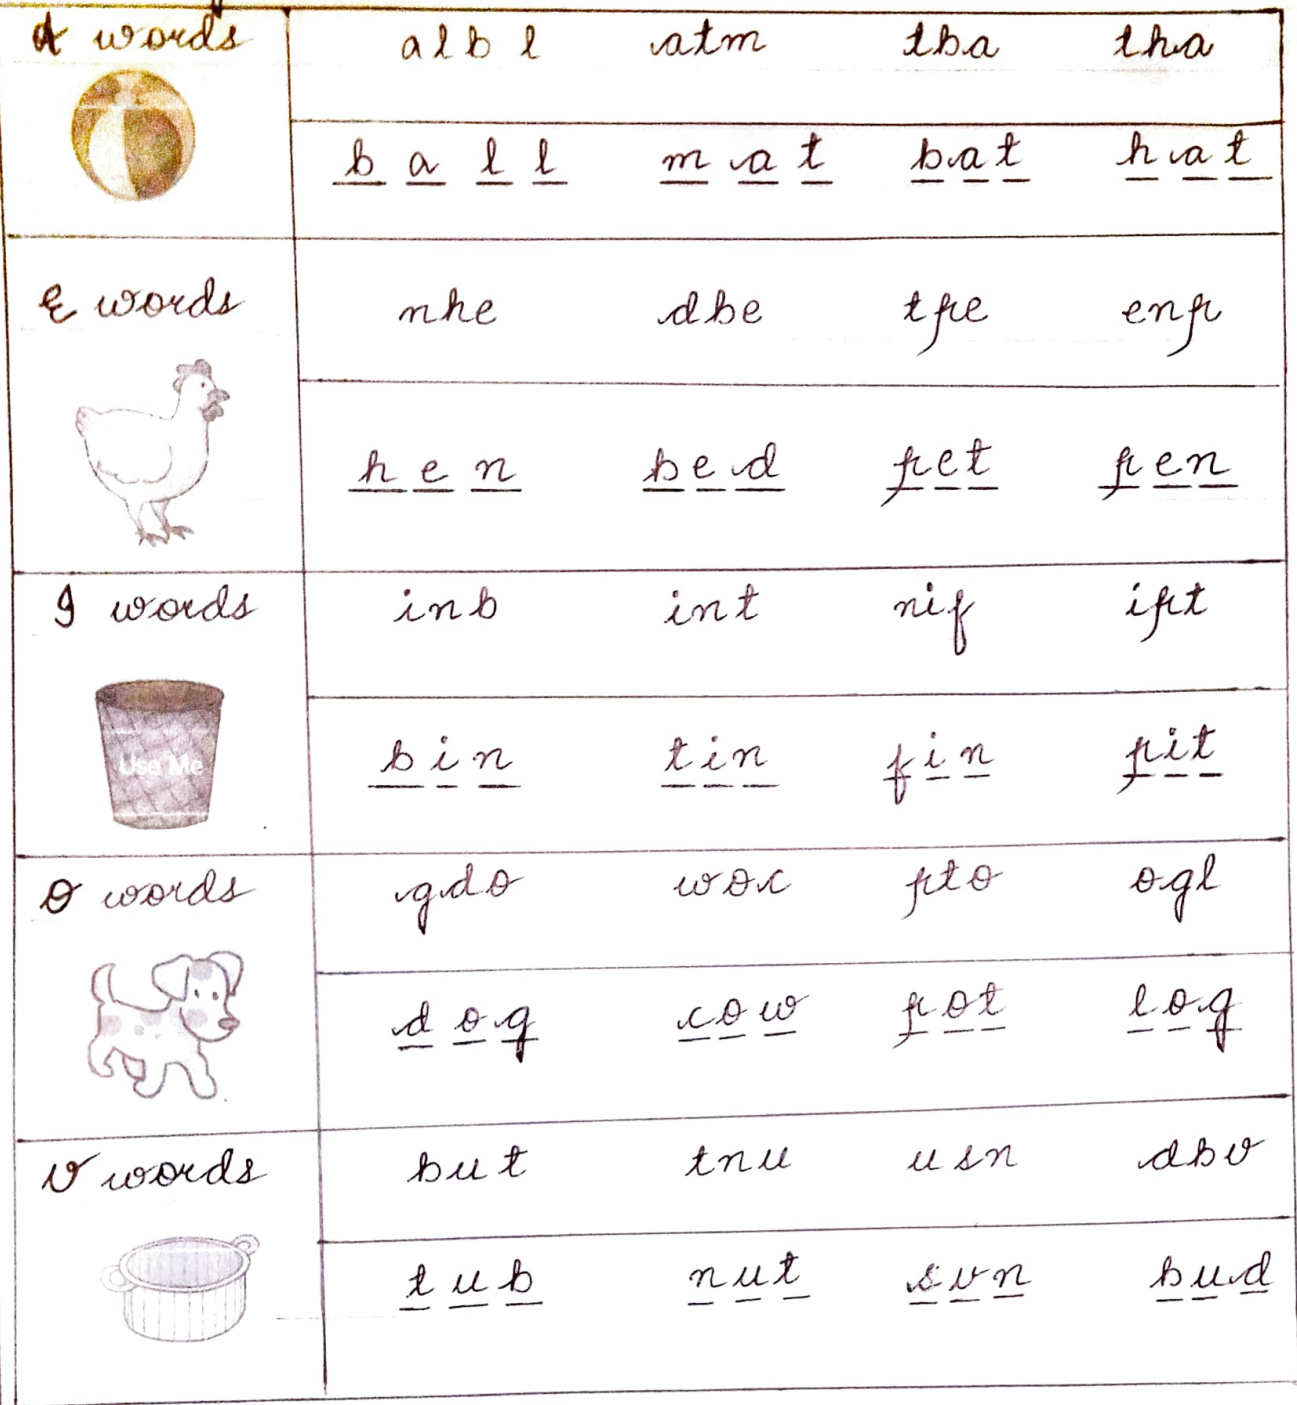 A words albl atm tba tha
ball mat bat hat
E words nhe dbe tpe enp
hen bed pet pen
I words inb int nif ipt
Use Me
bin tin fin pit
O words gdo woc pto ogl
dog cow pot log
U words but tnu usn dbu
tub nut sun bud